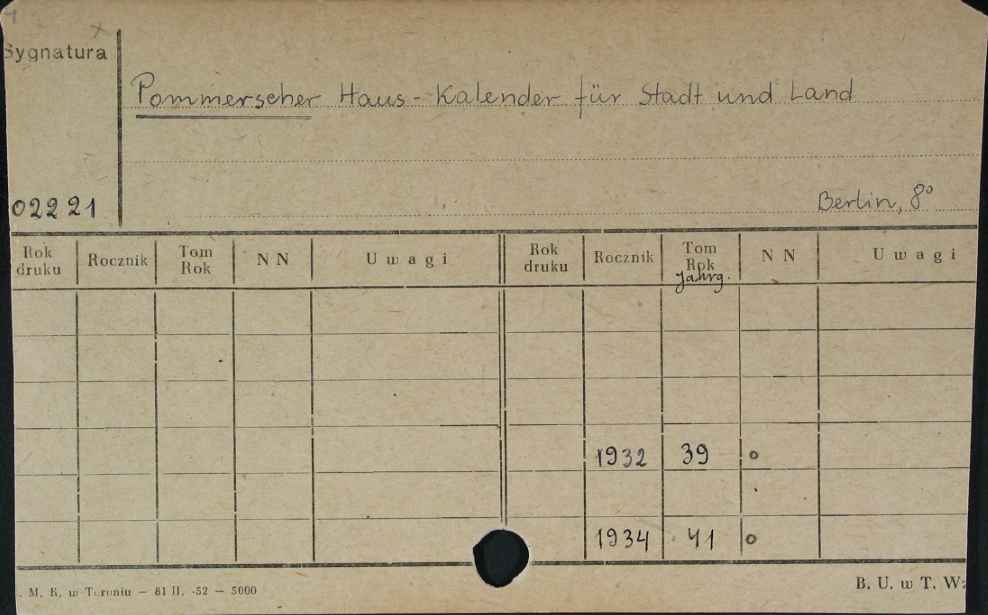 Sygnatura
Pommerscher Haus-Kalender für Stadt und Land
02221
Berlin, 8°
Rok druku Rocznik Tom Rok NN Uwagi Rok druku Rocznik Tom Rok Jahrg. NN Uwagi
1932 39 o
1934 41 o
. M. K. w Toruniu — 81 II. -52 — 5000
B. U. w T. W: